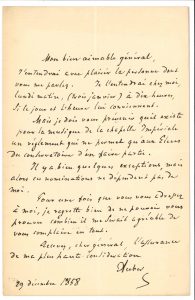 Mon bien aimable général,
J'entendrai avec plaisir la personne dont
vous me parlez. Je l'entendrai chez moi,
lundi matin, (trois janvier) à dix heures,
Si le jour et l'heure lui conviennent.
Mais je dois vous prévenir qu'il existe
pour la musique de la chapelle Impériale
un règlement qui ne permet qu'aux Élèves
du conservatoire d'en faire partie.
Il y a bien quelques exceptions mais
alors ces nominations ne dépendent pas de
moi.
Pour une fois que vous vous adressez
à moi, je regrette bien de ne pouvoir vous
prouver combien il me serait agréable de
vous complaire en tout.
Recevez, cher général, l'assurance
de ma plus haute considération
Auber
29 décembre 1858